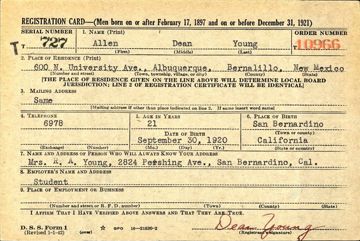 REGISTRATION CARD—(Men born on or after February 17, 1897 and on or before December 31, 1921)
SERIAL NUMBER 1. NAME (Print) ORDER NUMBER
T 727 Allen Dean Young T10966
(First) (Middle) (Last)
2. PLACE OF RESIDENCE (Print)
600 N. University Ave., Albuquerque, Bernalillo, New Mexico
(Number and street) (Town, township, village, or city) (County) (State)
[THE PLACE OF RESIDENCE GIVEN ON THE LINE ABOVE WILL DETERMINE LOCAL BOARD
JURISDICTION; LINE 2 OF REGISTRATION CERTIFICATE WILL BE IDENTICAL]
3. MAILING ADDRESS
Same
(Mailing address if other than place indicated on line 2. If same insert word same)
4. TELEPHONE 5. AGE IN YEARS 6. PLACE OF BIRTH
6978 21 San Bernardino
DATE OF BIRTH (Town or county)
September 30, 1920 California
(Exchange) (Number) (Mo.) (Day) (Yr.) (State or country)
7. NAME AND ADDRESS OF PERSON WHO WILL ALWAYS KNOW YOUR ADDRESS
Mrs. A. A. Young, 2824 Pershing Ave., San Bernardino, Cal.
8. EMPLOYER'S NAME AND ADDRESS
Student
9. PLACE OF EMPLOYMENT OR BUSINESS
(Number and street or R. F. D. number) (Town) (County) (State)
I AFFIRM THAT I HAVE VERIFIED ABOVE ANSWERS AND THAT THEY ARE TRUE.
D. S. S. Form 1
(Revised 1-1-42) (over) GPO 16—21630-2 Dean Young
(Registrant's signature)